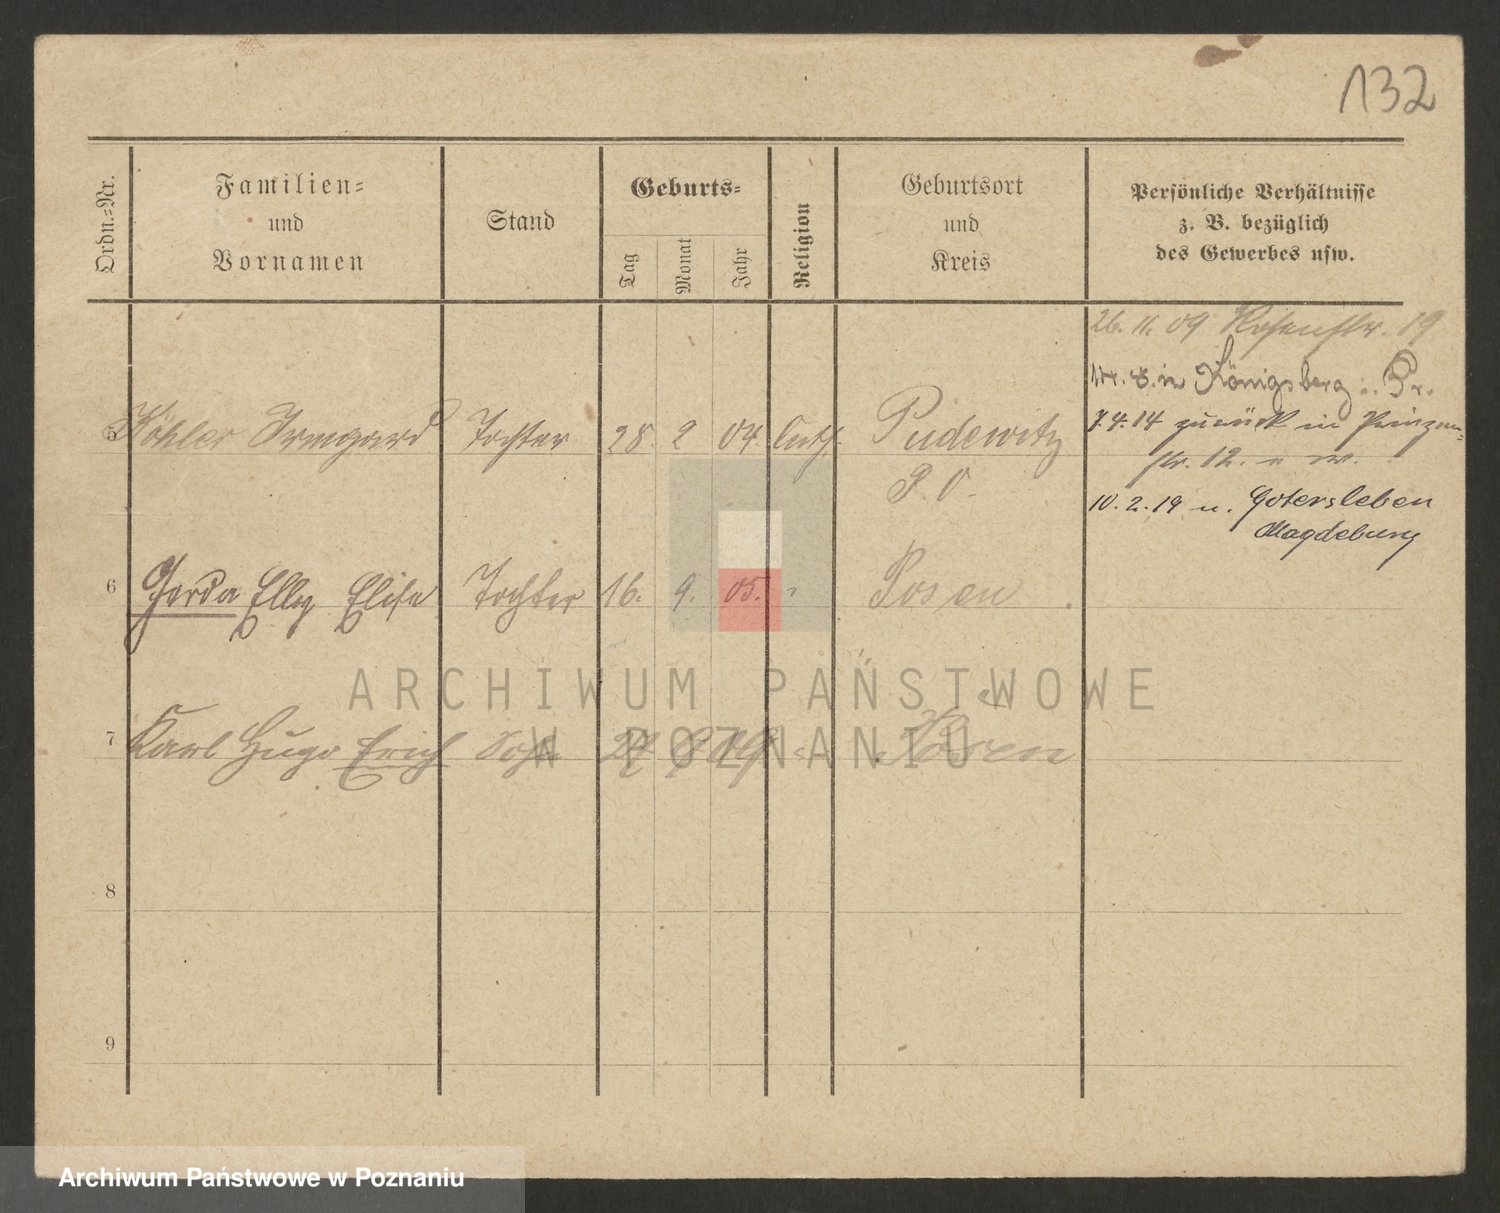 132
Ordn.-Nr.
Familien-
und
Vornamen
Stand
Geburts-
Tag
Monat
Jahr
Religion
Geburtsort
und
Kreis
Persönliche Verhältnisse
z. B. bezüglich
des Gewerbes usw.
26. 11. 09 Rosenstr. 19
in Königsberg i. Pr.
5 Köhler Irmgard Tochter 28 2 04 luth. Pudewitz
P. O.
7.4.14 zurück in Prinzen-
str. 12.
10. 2. 19 n. Gotersleben
Magdeburg
6 Gerda Elly Elise Tochter 16. 9. 05. " Posen
7 Karl Hugo Erich Sohn 27 Posen
8
9
ARCHIWUM PAŃSTWOWE
W POZNANIU
Archiwum Państwowe w Poznaniu